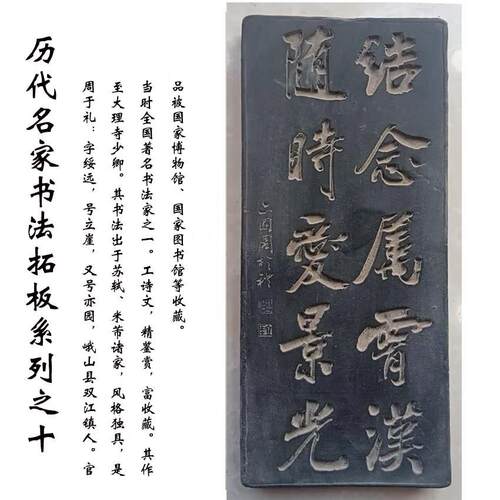 历代名家书法拓板系列之十
周于礼：字绥远，号立崖，又号亦园，峨山县双江镇人。官
至大理寺少卿。其书法出于苏轼、米芾诸家，风格独具，是
当时全国著名书法家之一。工诗文，精鉴赏，富收藏。其作
品被国家博物馆、国家图书馆等收藏。
结念属霄漢
随時愛景光
亦園周於禮